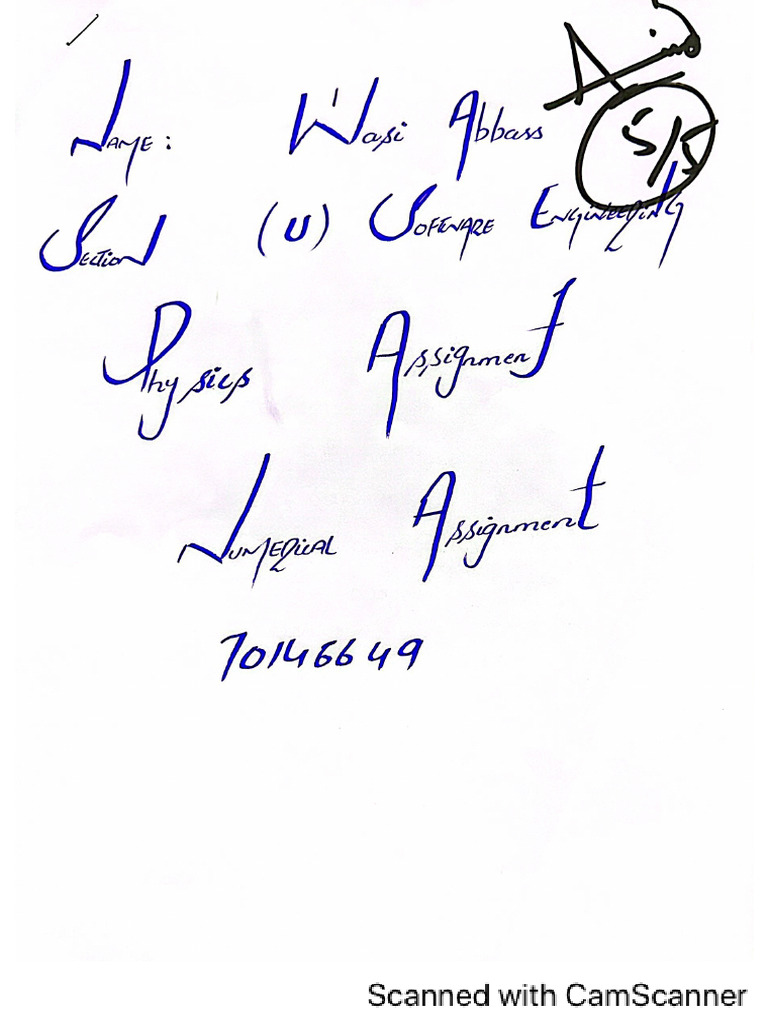 Name: Wasi Abbass
5/5
Section (U) Software Engineering
Physics Assignment
Numerical Assignment
70146649
Scanned with CamScanner